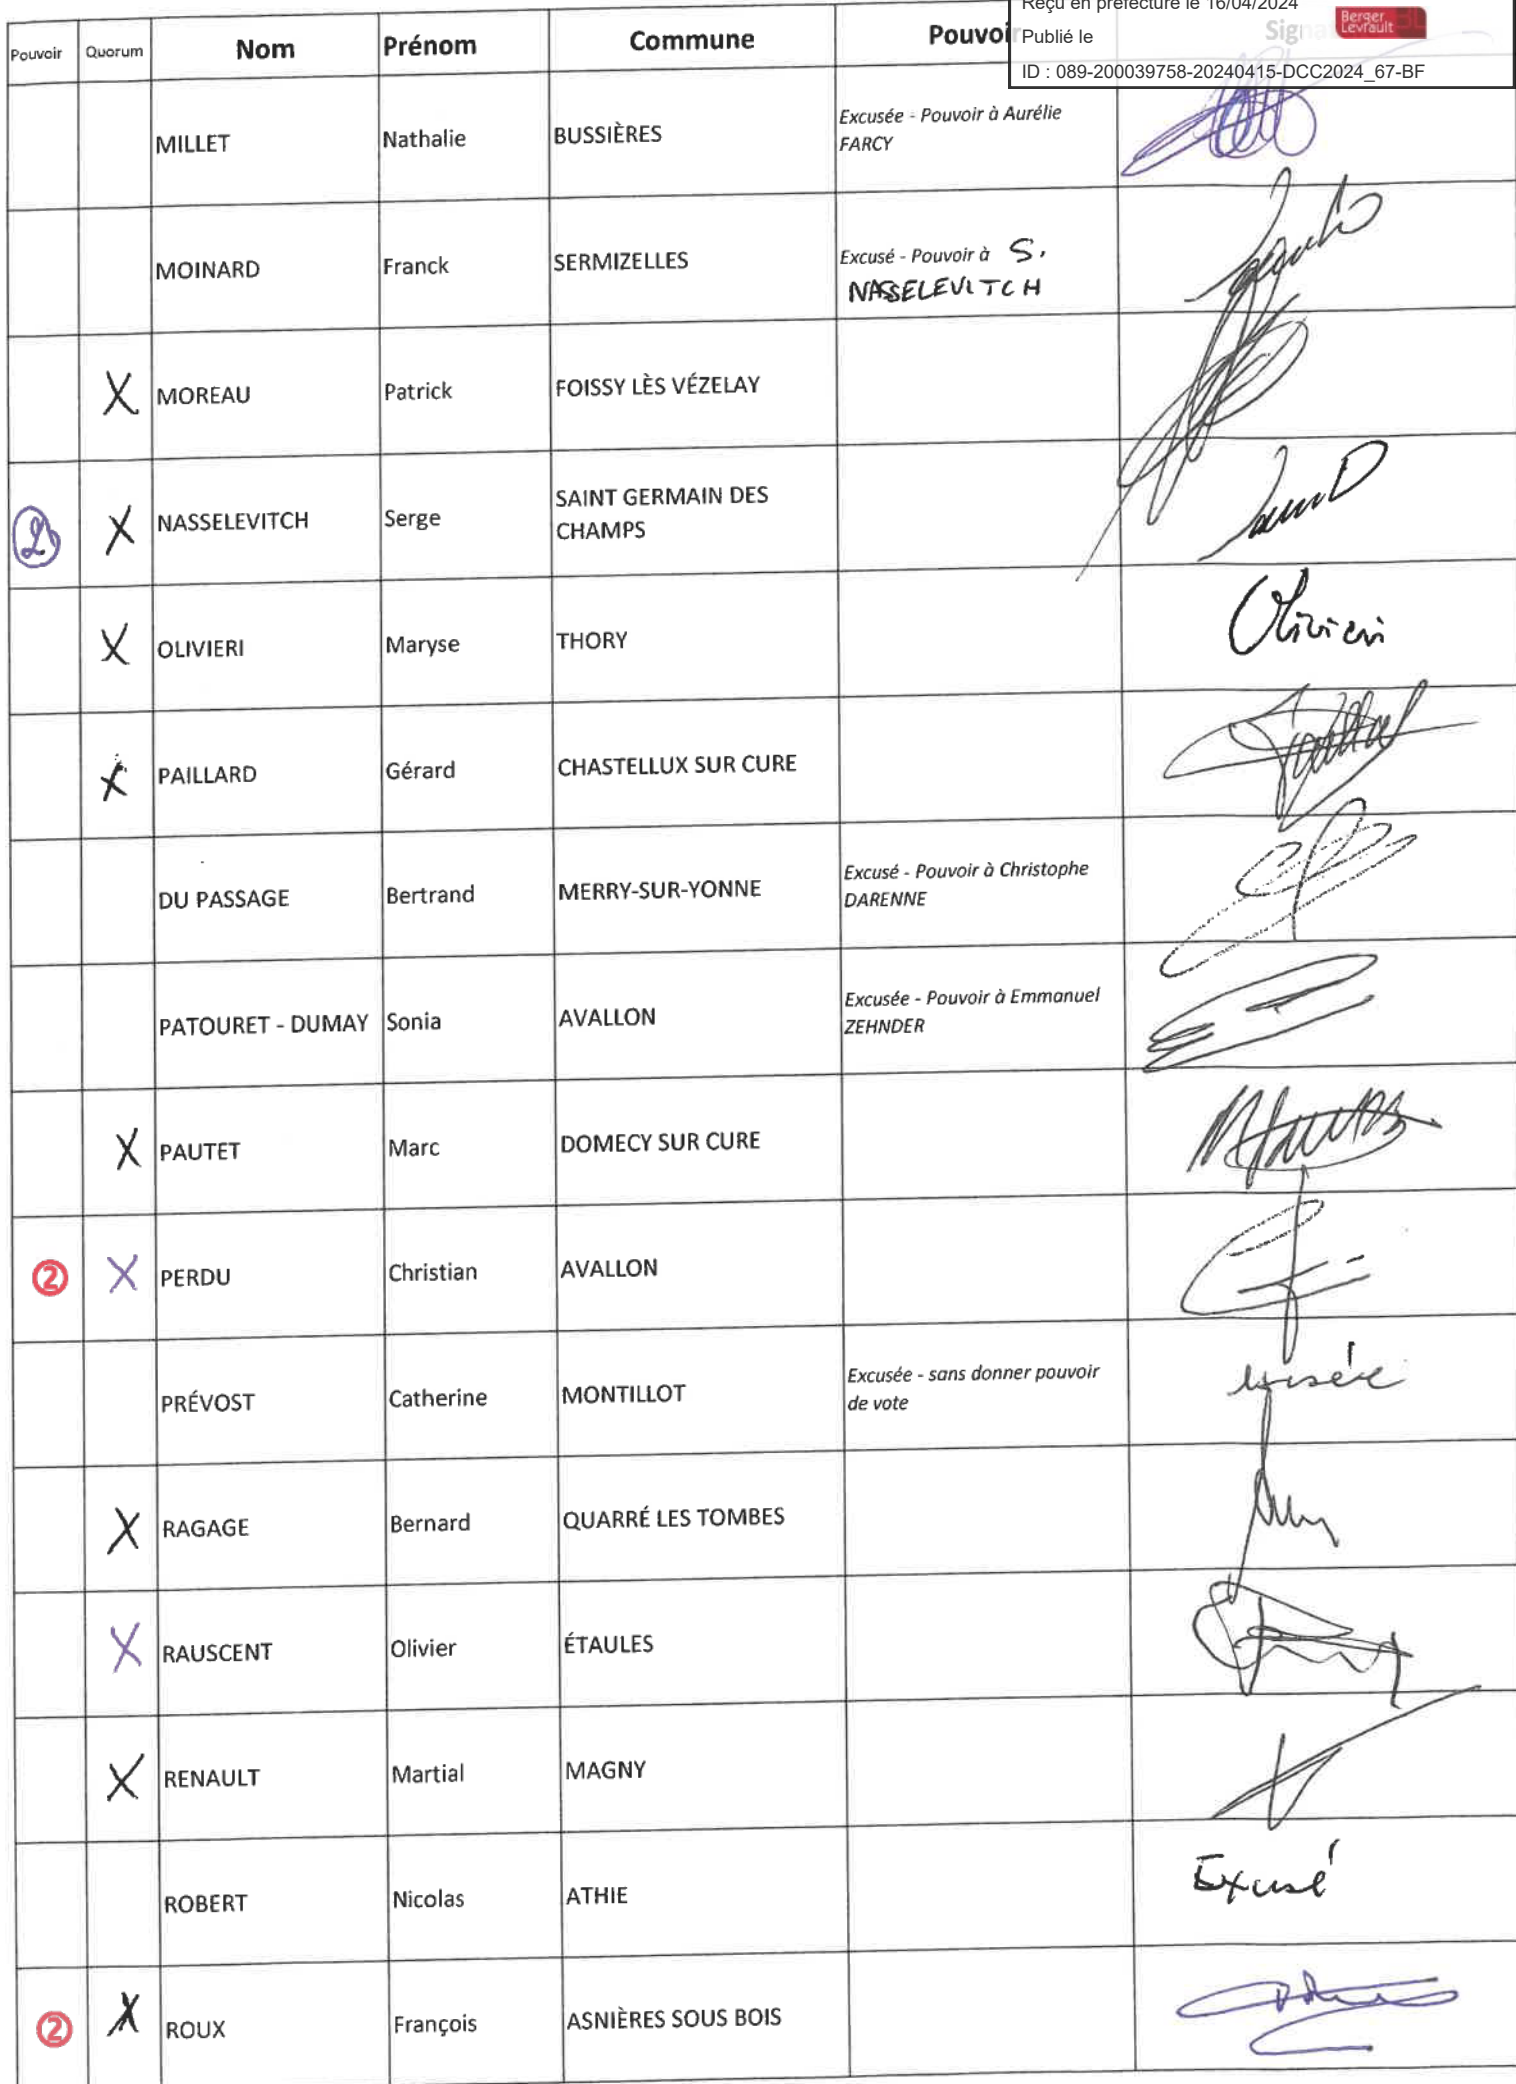 Reçu en préfecture le 16/04/2024
Publié le
Berger Levrault
ID : 089-200039758-20240415-DCC2024_67-BF
Pouvoir Quorum Nom Prénom Commune Pouvoir
MILLET Nathalie BUSSIÈRES Excusée - Pouvoir à Aurélie
FARCY
MOINARD Franck SERMIZELLES Excusé - Pouvoir à S.
NASSELEVITCH
X MOREAU Patrick FOISSY LÈS VÉZELAY
2 X NASSELEVITCH Serge SAINT GERMAIN DES
CHAMPS
X OLIVIERI Maryse THORY Olivieri
X PAILLARD Gérard CHASTELLUX SUR CURE
DU PASSAGE Bertrand MERRY-SUR-YONNE Excusé - Pouvoir à Christophe
DARENNE
PATOURET - DUMAY Sonia AVALLON Excusée - Pouvoir à Emmanuel
ZEHNDER
X PAUTET Marc DOMECY SUR CURE
② X PERDU Christian AVALLON
PRÉVOST Catherine MONTILLOT Excusée - sans donner pouvoir
de vote
X RAGAGE Bernard QUARRÉ LES TOMBES
X RAUSCENT Olivier ÉTAULES
X RENAULT Martial MAGNY
ROBERT Nicolas ATHIE Excusé
② X ROUX François ASNIÈRES SOUS BOIS